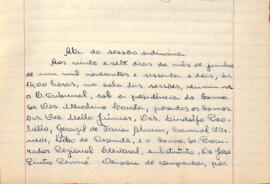 Ata da sessão ordinária
Aos vinte e sete dias do mês de junho
de um mil novecentos e sessenta e dois, às
16,00 horas, na sala das sessões, reuniu-se
o Tribunal, sob a presidência do Exmo.
Sr. Des. Corrêa, presentes os Exmos.
Srs. Drs. Mello Júnior, Des. Lindolfo Pao-
liello, de Faria Alvim, Samuel Wer-
neck, de Rezende, e o Exmo. Sr. Procu-
rador Regional Eleitoral, substituto, Dr. José
Pinto Renó. Deixou de comparecer, por